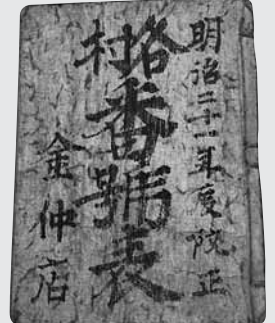 明治二十一年度改正
各村
番號表
金仲店